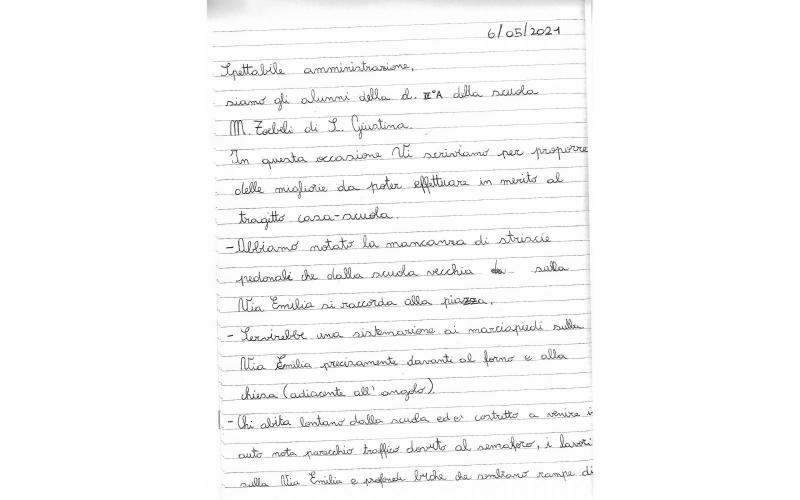 6/05/2021
Spettabile amministrazione,
siamo gli alunni della cl. II°A della scuola
M. Zoebeli di S. Giustina.
In questa occasione Vi scriviamo per proporre
delle migliorie da poter effettuare in merito al
tragitto casa-scuola.
- Abbiamo notato la mancanza di striscie
pedonali che dalla scuola vecchia sulla
Via Emilia si raccorda alla piazza.
- Servirebbe una sistemazione ai marciapiedi sulla
Via Emilia precisamente davanti al forno e alla
chiesa (adiacente all'angolo).
- Chi abita lontano dalla scuola ed è costretto a venire i
auto nota parecchio traffico dovuto al semaforo, i lavori
sulla Via Emilia e profonde buche che sembrano rampe di